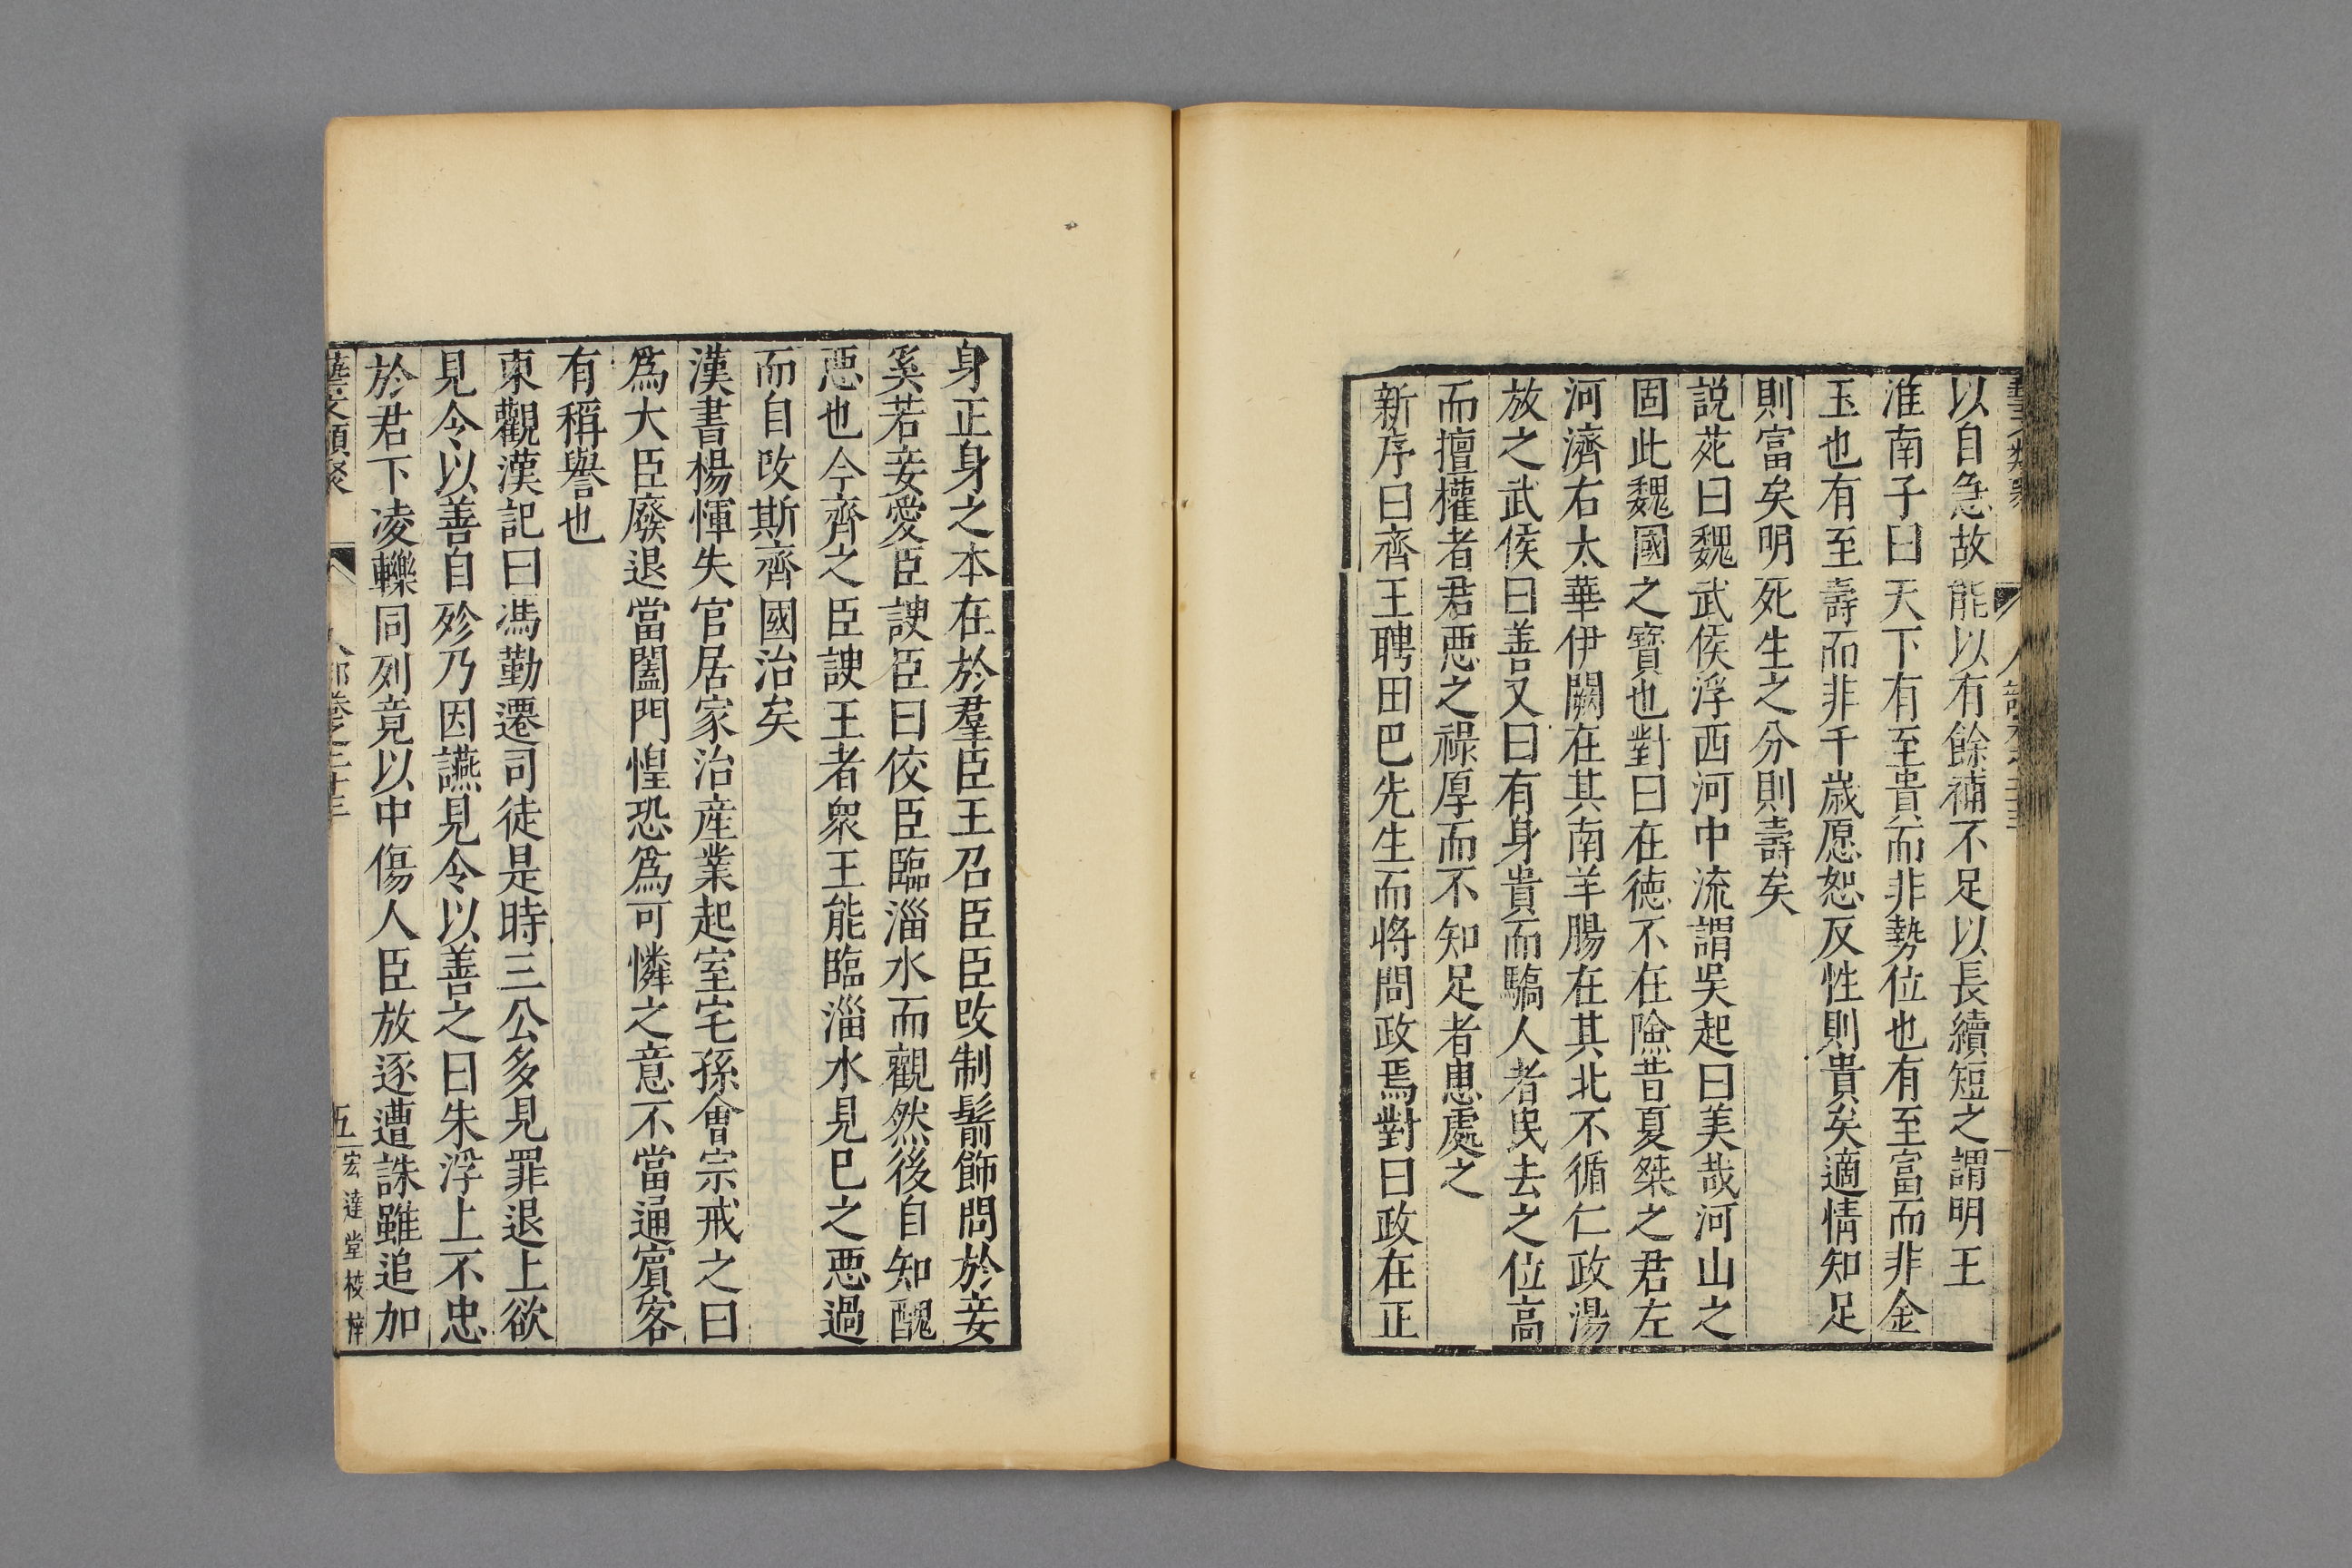 以自急故能以有餘補不足以長續短之謂明王
淮南子曰天下有至貴而非勢位也有至富而非金
玉也有至壽而非千歲愿恕反性則貴矣適情知足
則富矣明死生之分則壽矣
説苑曰魏武侯浮西河中流謂吳起曰美哉河山之
固此魏國之寶也對曰在德不在險昔夏桀之君左
河濟右太華伊闕在其南羊腸在其北不循仁政湯
放之武侯曰善又曰有身貴而驕人者民去之位高
而擅權者君惡之祿厚而不知足者患處之
新序曰齊王聘田巴先生而將問政焉對曰政在正
身正身之本在於羣臣王召臣臣改制鬋飾問於妾
奚若妾愛臣諛臣曰佼臣臨淄水而觀然後自知醜
惡也今齊之臣諛王者衆王能臨淄水見己之惡過
而自改斯齊國治矣
漢書楊惲失官居家治産業起室宅孫會宗戒之曰
爲大臣廢退當闔門惶恐爲可憐之意不當通賓客
有稱譽也
東觀漢記曰馮勤遷司徒是時三公多見罪退上欲
見令以善自殄乃因讌見令以善之曰朱浮上不忠
於君下凌轢同列竟以中傷人臣放逐遭誅雖追加
藝文類聚 人部卷之二十三 五 宏達堂校梓